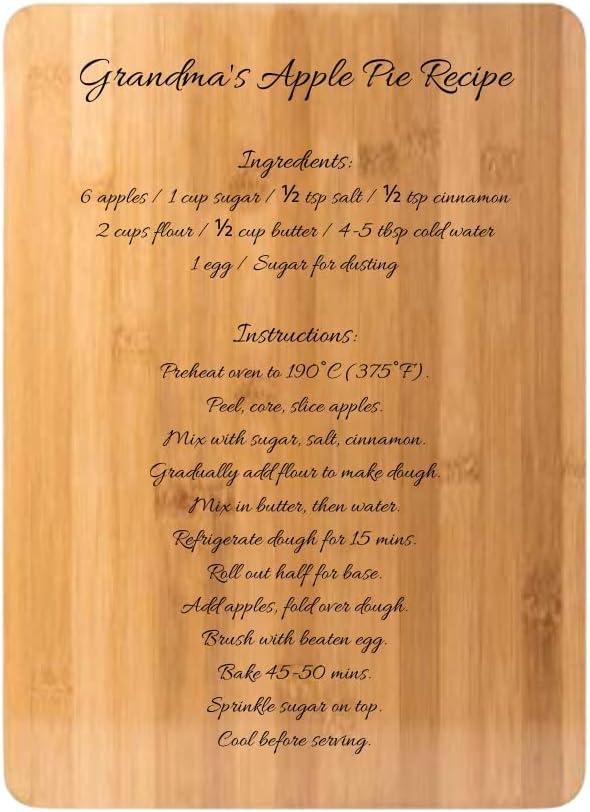 Grandma's Apple Pie Recipe
Ingredients:
6 apples / 1 cup sugar / ½ tsp salt / ½ tsp cinnamon
2 cups flour / ½ cup butter / 4-5 tbsp cold water
1 egg / Sugar for dusting
Instructions:
Preheat oven to 190°C (375°F).
Peel, core, slice apples.
Mix with sugar, salt, cinnamon.
Gradually add flour to make dough.
Mix in butter, then water.
Refrigerate dough for 15 mins.
Roll out half for base.
Add apples, fold over dough.
Brush with beaten egg.
Bake 45-50 mins.
Sprinkle sugar on top.
Cool before serving.